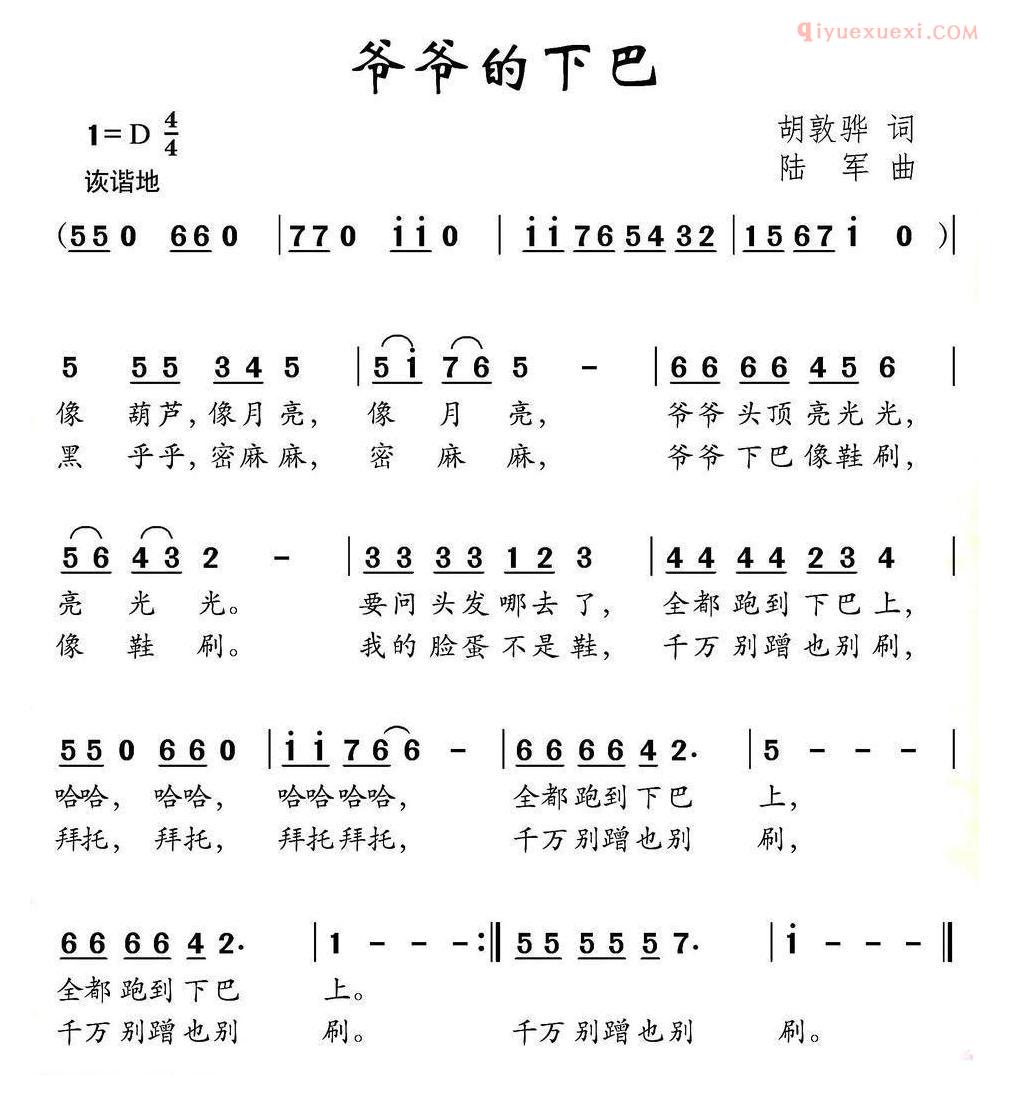 iyuexuexi.COM
爷爷的下巴
1=D 4/4
胡敦骅 词
诙谐地
陆 军 曲
(5 5 0 6 6 0 | 7 7 0 i i 0 | i i 7 6 5 4 3 2 | 1 5 6 7 i 0 )|
5 5 5 3 4 5 | 5 i 7 6 5 – | 6 6 6 6 4 5 6 |
像 葫芦,像月亮, 像 月 亮, 爷爷头顶亮光光,
黑 乎乎,密麻麻, 密 麻 麻, 爷爷下巴像鞋刷,
5 6 4 3 2 – | 3 3 3 3 1 2 3 | 4 4 4 4 2 3 4 |
亮 光 光。 要问头发哪去了, 全都跑到下巴上,
像 鞋 刷。 我的脸蛋不是鞋, 千万别蹭也别刷,
5 5 0 6 6 0 | i i 7 6 6 – | 6 6 6 6 4 2. | 5 – – – |
哈哈, 哈哈, 哈哈哈哈, 全都跑到下巴 上,
拜托, 拜托, 拜托拜托, 千万别蹭也别 刷,
6 6 6 6 4 2. | 1 – – – :‖ 5 5 5 5 5 7. | i – – – ‖
全都跑到下巴 上。
千万别蹭也别 刷。 千万别蹭也别 刷。